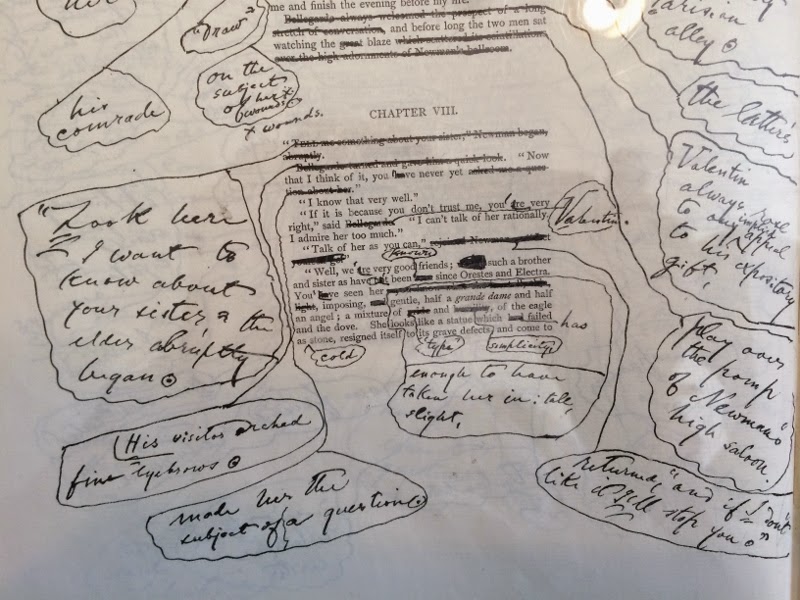 me and finish the evening before my fire.
Bellegarde always welcomed the prospect of a long
stretch of conversation, and before long the two men sat
watching the great blaze which scattered its scintillations
over the high adornments of Newman's ballroom.
"Draw"
on the
subject
of her
wounds
x wounds.
his
comrade
Parisian
alley
the latter's
CHAPTER VIII.
"Tell me something about your sister," Newman began,
abruptly.
Bellegarde turned and gave him a quick look. "Now
that I think of it, you have never yet asked me a ques-
tion about her."
"I know that very well."
"If it is because you don't trust me, you are very
right," said Bellegarde. "I can't talk of her rationally.
I admire her too much."
"Talk of her as you can,"
"Well, we are very good friends; such a brother
and sister as have not been since Orestes and Electra.
You have seen her
light, imposing, gentle, half a grande dame and half
an angel; a mixture of and of the eagle
and the dove. She looks like a statue which had failed
as stone, resigned itself to its grave defects, and come to
Valentin.
known
has
cold
"type"
simplicity,
enough to have
taken her in: tall,
slight,
"Look here
I want to
know about
your sister, the
elder abruptly
began
His visitor arched
fine eyebrows
made her the
subject of a question
Valentin
always
to any appeal
to his expository
gift,
play over
the pomp
of Newman's
high saloon.
returned, "and if I don't
like it I'll stop you."